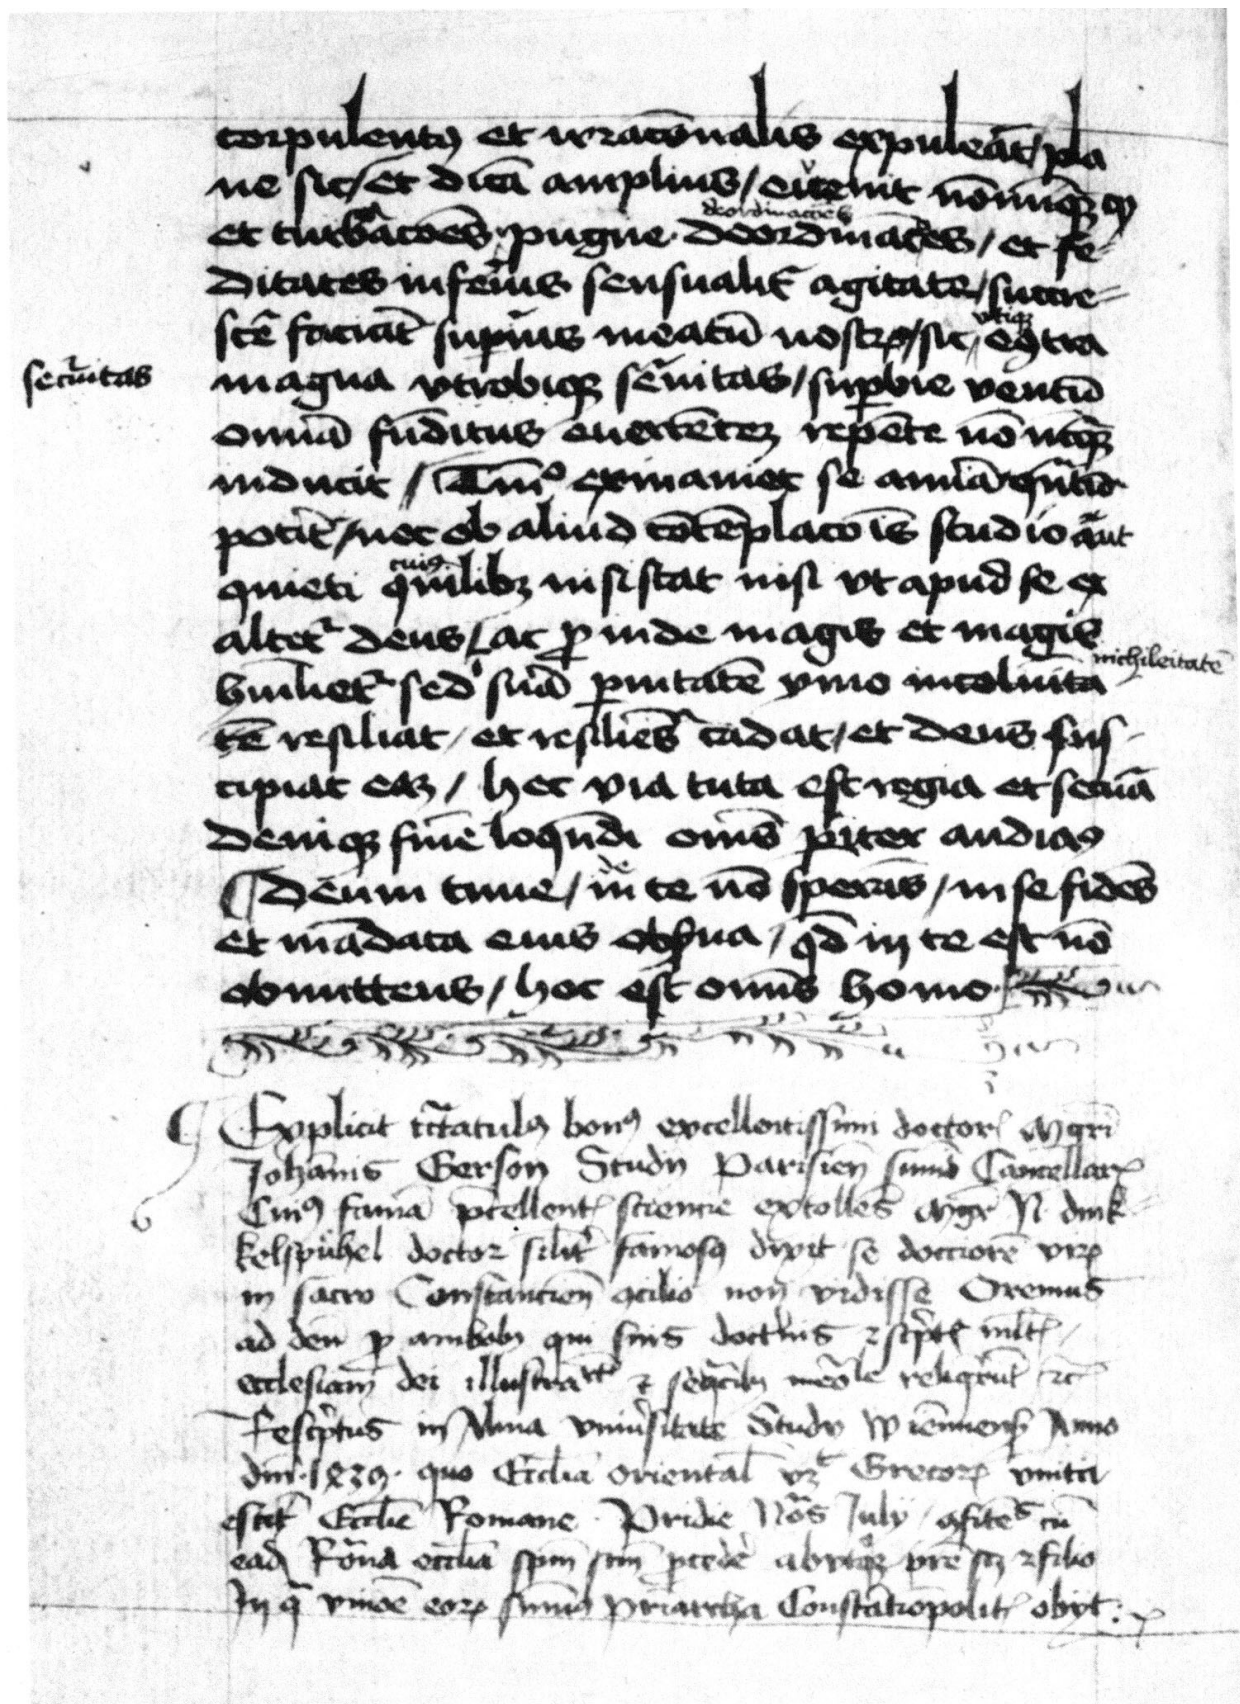 corpulentꝰ et irracōnalis expuleāt / pla
ne sic / et dicā amplius / euenit nōnūqꝫ ꝙ
et turbacōes pugne deordinacōes / et fe-
deordinacōes
ditates inferius sensualit̄ agitate / succre-
scē faciāt supius meatū nostrꝝ / sic / eꝯtra
vtiqꝫ
secūritas
magna vtrobiqꝫ seūritas / supbie ventū
omīa fūditus euertēteꝫ repēte nō nūqꝫ
inducit / exinaniet se anīa qūtū
potit̄ / nec ob aliud cōtēplacōis studio aut
quieti quīlibꝫ insistat nisi vt apud se ex
cuiꝰ
altet̄ deus / ac ꝓinde magis et magis
nichileitatē
hūiliet̄ sed suā puitatē ymo incolūita
tē resiliat / et resiliēs cadat / et deus sus-
cipiat eā / hec via tuta est regia et secūa
Deniqꝫ finē loquēdi omēs pīter audiaꝰ
Deum time / in te nō speraūs / in se fidēs
de
et mādata eius obẜua / qd̄ in te est nō
obmittens / hoc est omīs homo
Explicit tractatulꝰ bonꝰ excellentissimi doctorꝭ Mgr̄i
Johānis Gerson Studij Parisien̄ summi Cancellarꝭ
Cuiꝰ famā p̄cellentꝭ sciencie extollēs Mgr̄ N. dink-
kelspühel doctor silit̄ famosꝰ dixit se docciorē virꝝ
in sacro Constancien̄ ꝯcilio non vidisse Oremus
ad deū ꝓ ambobꝫ qui suis doctrīis ⁊ scp̄tꝭ mltꝭ /
ecclesiam dei illustrarūt ⁊ seqūcibꝫ relīqrūt ⁊c̄
Rescp̄tus in Alma vniūsitate Studij Wiennensꝭ Anno
dn̄i · 1439 · quo Ecclīa orientalꝭ vꝫ Grecorꝝ vnita
est Ecclīe Romane · Pridie Noās Julij / ꝯfitēs cū
eadē Rōana ecclīa spm̄ scm̄ p̄cedē ab vtqꝫ pr̄e scꝫ ⁊ filio
In qua vnioē eorꝝ summꝰ pr̄iarcha Constātiopolitꝭ obijt :